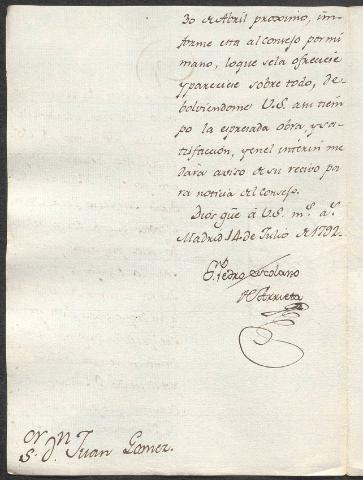 30 de Abril proximo, in-
forme esta al Consejo por mi
mano, lo que se la ofreciese
y pareciese sobre todo, de-
bolviendome V.S. a su tiem-
po la expresada obra, y sa-
tisfaccion, y en el interin me
dará aviso de su recivo pa-
ra noticia del Consejo.
Dios güe á V.S. m.s a.s
Madrid 14 de Julio de 1792.
Pedro Escolano
de Arrieta
S.or D.n Juan Gomez.